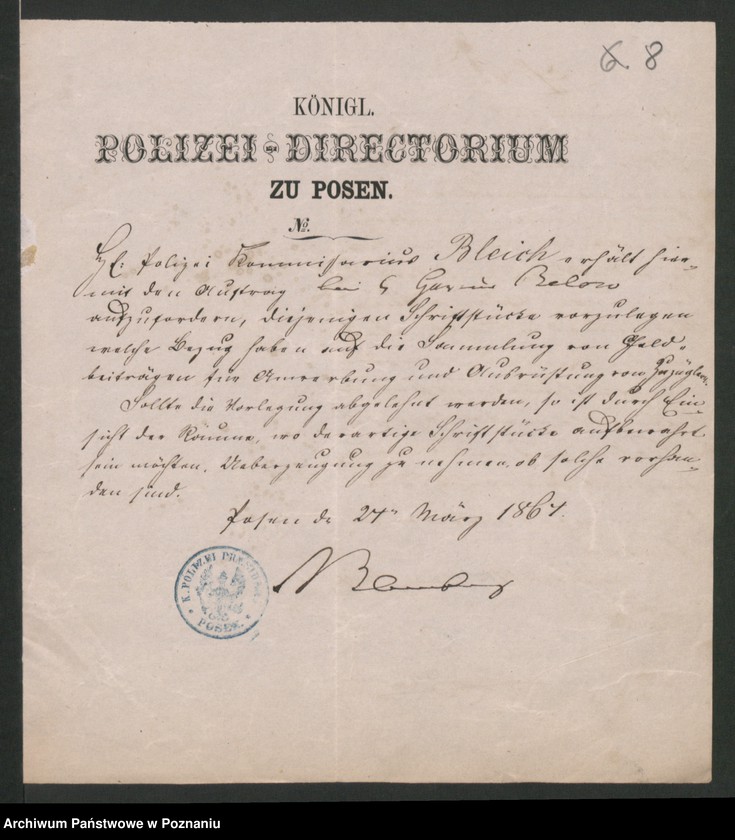 6. 8
KÖNIGL.
POLIZEI-DIRECTORIUM
ZU POSEN.
No.
Hr: Polizei Kommissarius Bleich erhält hier-
mit den Auftrag
aufzufordern, diejenigen Schriftstücke vorzulegen
welche Bezug haben auf die Sammlung von Geld-
beiträgen für Anwerbung und Ausrüstung von Zuzüglern.
Sollte die Vorlegung abgelehnt werden, so ist durch Ein
sicht der Räume, wo derartige Schriftstücke aufbewahrt
sein möchten, Ueberzeugung zu nehmen, ob solche vorhan-
den sind.
Posen de 27 März 1864.
K. POLIZEI PRESIDIUM
POSEN.
Archiwum Państwowe w Poznaniu